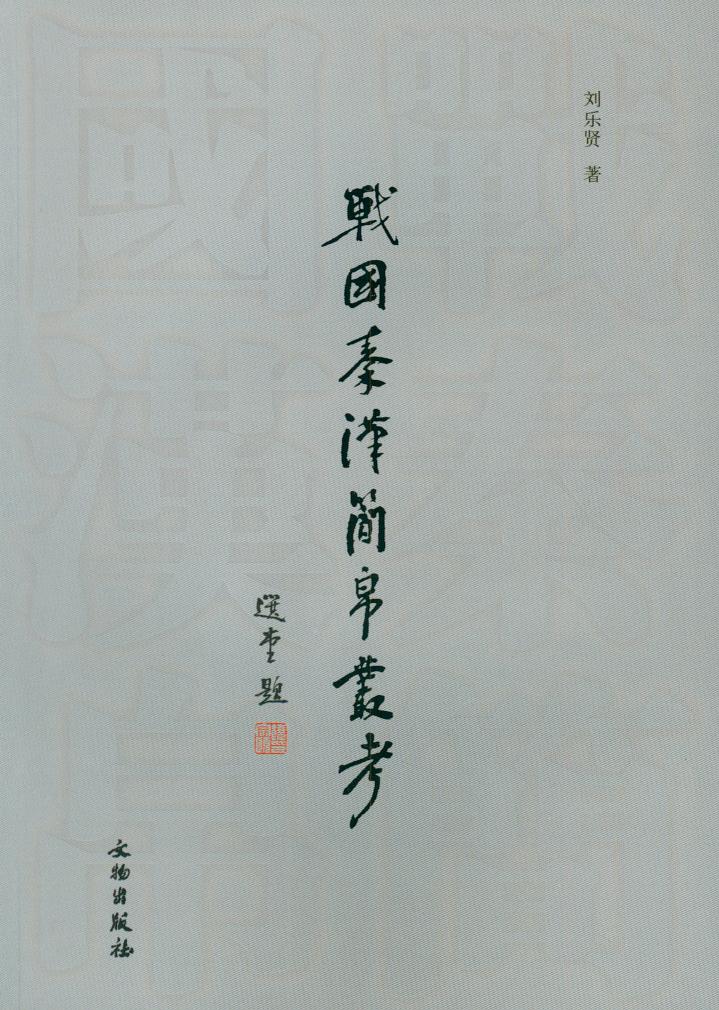 刘乐贤 著
戰國秦漢簡帛叢考
選堂題
文物出版社